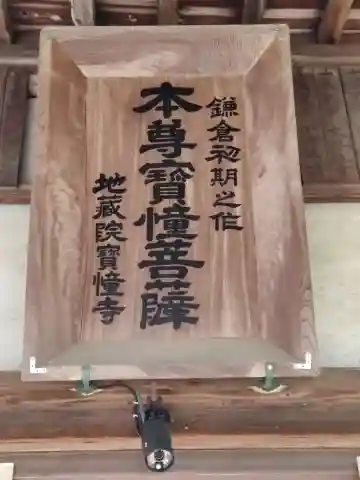 鎌倉初期之作
本尊寶憧菩薩
地藏院寶憧寺